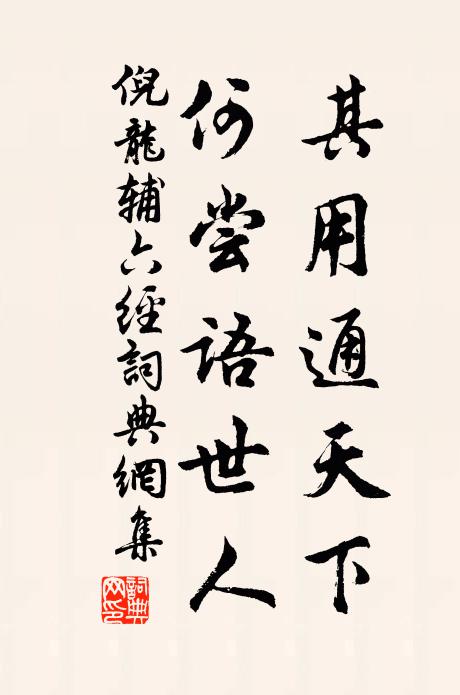 其用通天下
何尝語世人
倪龍辅六經詞典網集
詞典
网印